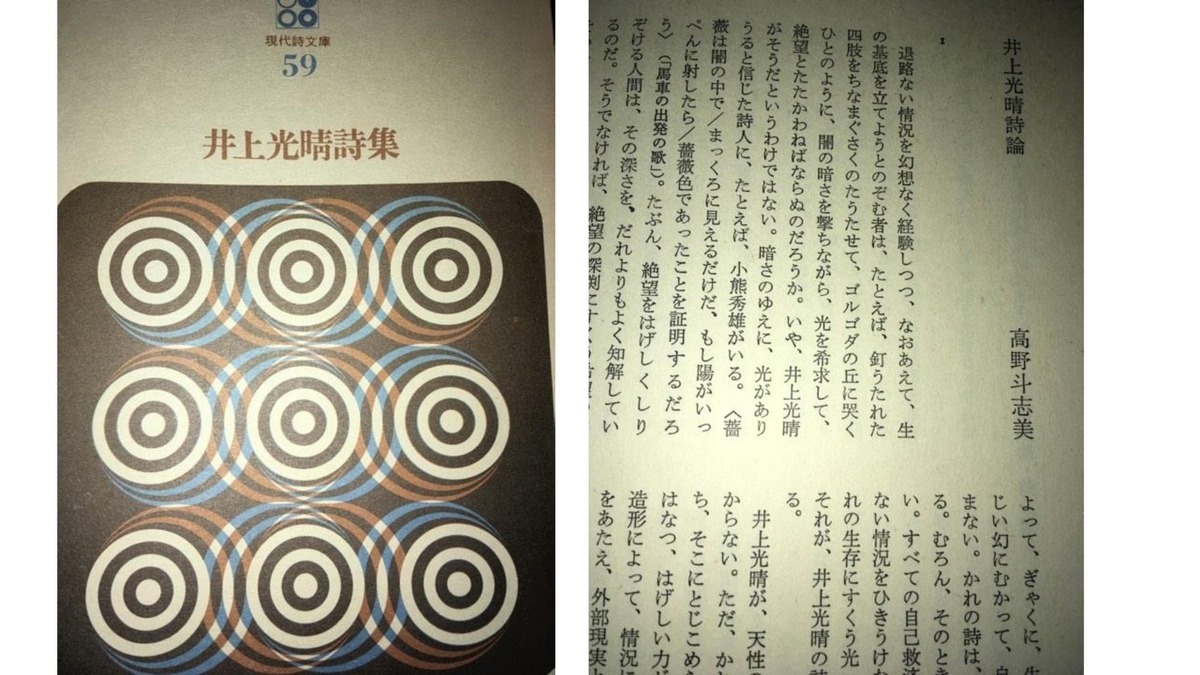 現代詩文庫
59
井上光晴詩集
井上光晴詩論
高野斗志美
1
退路ない情況を幻想なく経験しつつ、なおあえて、生
の基底を立てようとのぞむ者は、たとえば、釘うたれた
四肢をちなまぐさくのたうたせて、ゴルゴダの丘に哭く
ひとのように、闇の暗さを撃ちながら、光を希求して、
絶望とたたかわねばならぬのだろうか。いや、井上光晴
がそうだというわけではない。暗さのゆえに、光があり
うると信じた詩人に、たとえば、小熊秀雄がいる。〈薔
薇は闇の中で/まっくろに見えるだけだ、もし陽がいっ
ぺんに射したら/薔薇色であったことを証明するだろ
う〉(「馬車の出発の歌」)。たぶん、絶望をはげしくくしり
ぞける人間は、その深さを、だれよりもよく知解してい
るのだ。そうでなければ、絶望の深渕にすくう
よって、ぎゃくに、
じい幻にむかって、
まない。かれの詩は、
る。むろん、そのとき
い。すべての自己救済
ない情況をひきうけ
れの生存にすくう光
それが、井上光晴の
る。
井上光晴が、天性の
からない。ただ、か
ち、そこにとじこめ
はなつ、はげしい力
造形によって、情況に
をあたえ、外部現実